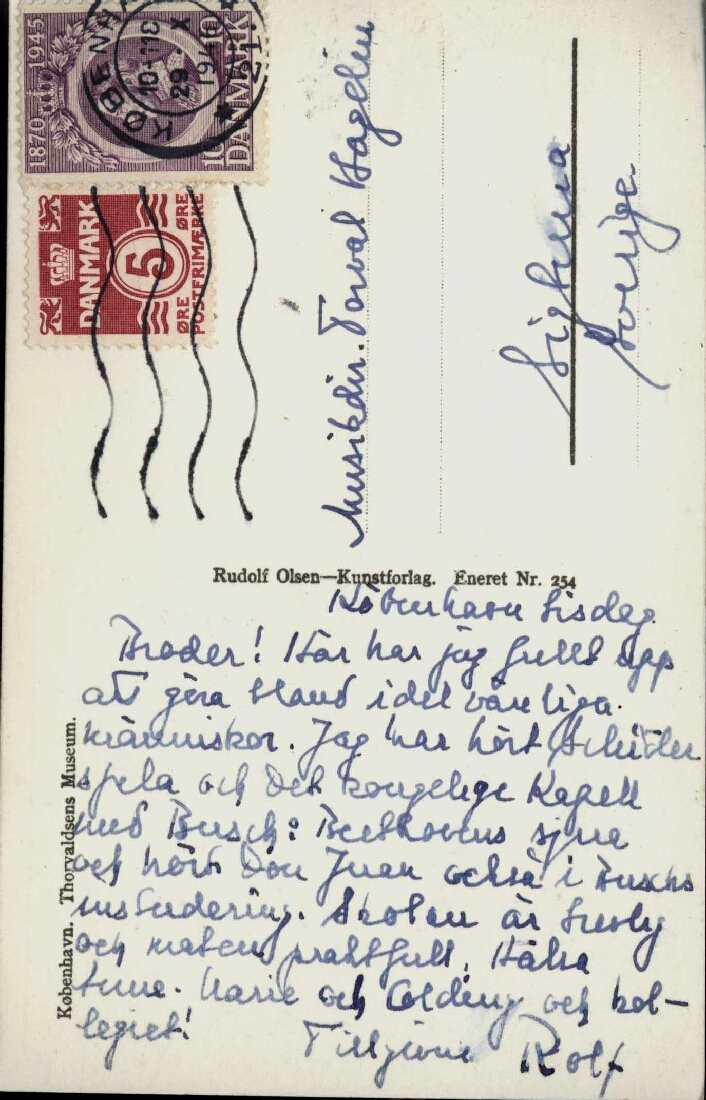 1870 1945
10
DANMARK
KØBENHA
10-11
29 X
194
DANMARK
5
ØRE ØRE
POSTFRIMÆRKE
Musikdir. Torval Hagelin
Sigtuna
Sverige
Rudolf Olsen—Kunstforlag. Eneret Nr. 254
København. Thorvaldsens Museum.
Köbenhavn tisdag.
Broder! Här har jag fullt upp
att göra bland idel vänliga
människor. Jag har hört
spela och det kongelige Kapell
med Busch: Beethovens sjua
och hört Don Juan också i Buschs
instudering. Skolan är trevlig
och maten praktfull. Hälsa
Marie och Colding och kol-
legiet!
Tillgivne Rolf